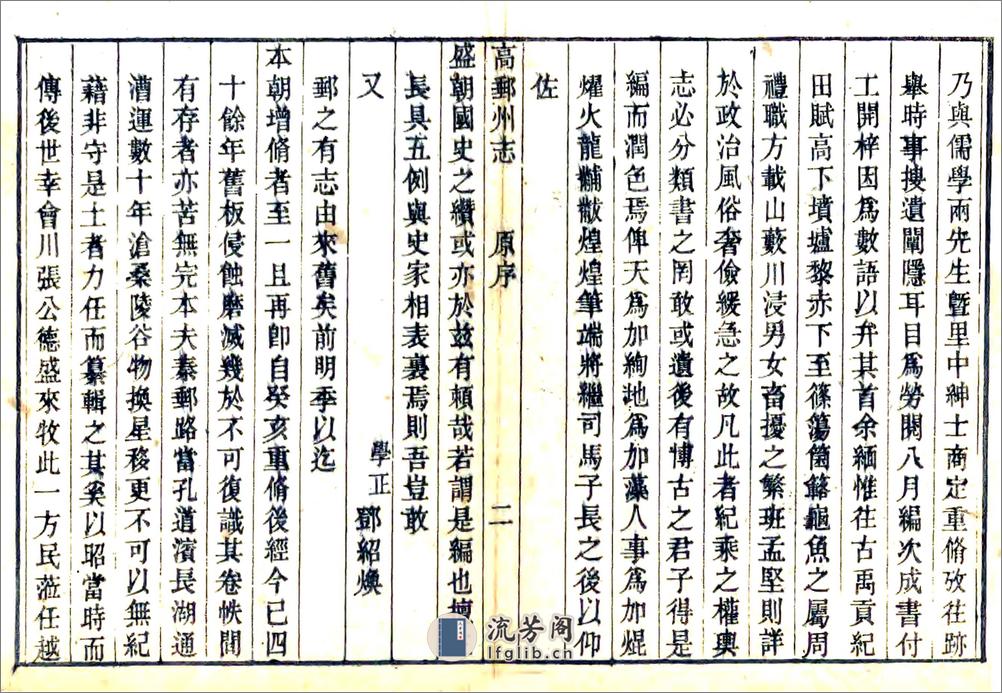 乃與儒學兩先生暨里中紳士商定重脩攷往跡
舉時事搜遺闡隱耳目為勞閱八月編次成書付
工開梓因為數語以弁其首余緬惟往古禹貢紀
田賦高下墳壚黎赤下至篠簜箘簵龜魚之屬周
禮職方載山藪川浸男女畜擾之繁班孟堅則詳
於政治風俗奢儉緩急之故凡此者紀乘之權輿
志必分類書之罔敢或遺後有博古之君子得是
編而潤色焉俾天為加絢地為加藻人事為加焜
燿火龍黼黻煌煌筆端將繼司馬子長之後以仰
佐
高郵州志 原序 二
盛朝國史之纘或亦於茲有賴哉若謂是編也
長具五例與史家相表裏焉則吾豈敢
又 學正 鄧紹煥
郵之有志由來舊矣前明季以迄
本朝增脩者至一且再卽自癸亥重脩後經今已四
十餘年舊板侵蝕磨滅幾於不可復識其卷帙間
有存者亦苦無完本夫秦郵路當孔道濱長湖通
漕運數十年滄桑陵谷物換星移更不可以無紀
藉非守是土者力任而纂輯之其奚以昭當時而
傳後世幸會川張公德盛來牧此一方民蒞任越
流芳阁
lfglib.cn